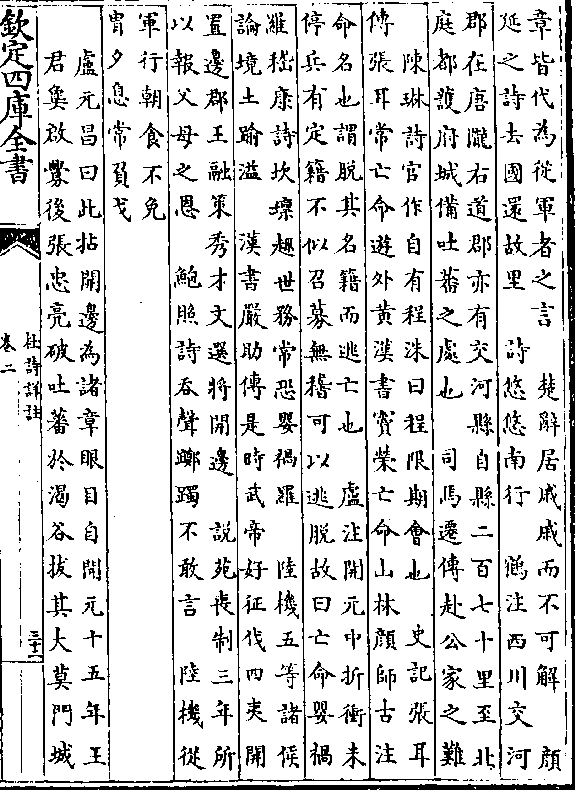 章皆代為從軍者之言　楚辭居戚戚而不可解　顔
延之詩去國還故里　詩悠悠南行　鶴注西川交河
郡在唐隴右道郡亦有交河縣自縣二百七十里至北
庭都護府城備吐蕃之處也　司馬遷傳赴公家之難
陳琳詩官作自有程洙曰程限期會也　史記張耳
傳張耳常亡命遊外黄漢書竇榮亡命山林顔師古注
命名也謂脱其名籍而逃亡也　盧注開元中折衝未
停兵有定籍不似召募無稽可以逃脱故曰亡命嬰禍
羅嵇康詩坎壈趣世務常恐嬰禍羅　陸機五等諸侯
論境土踰溢　漢書嚴助傳是時武帝好征伐四夷開
置邊郡王融策秀才文選將開邊　説苑喪制三年所
以報父母之恩　鮑照詩吞聲躑躅不敢言　陸機從
軍行朝食不免
胄夕息常負戈
盧元昌曰此拈開邊為諸章眼目自開元十五年王
君㚟啟釁後張忠亮破吐蕃於渴谷拔其大莫門城
欽定四庫全書
杜詩詳註
卷二